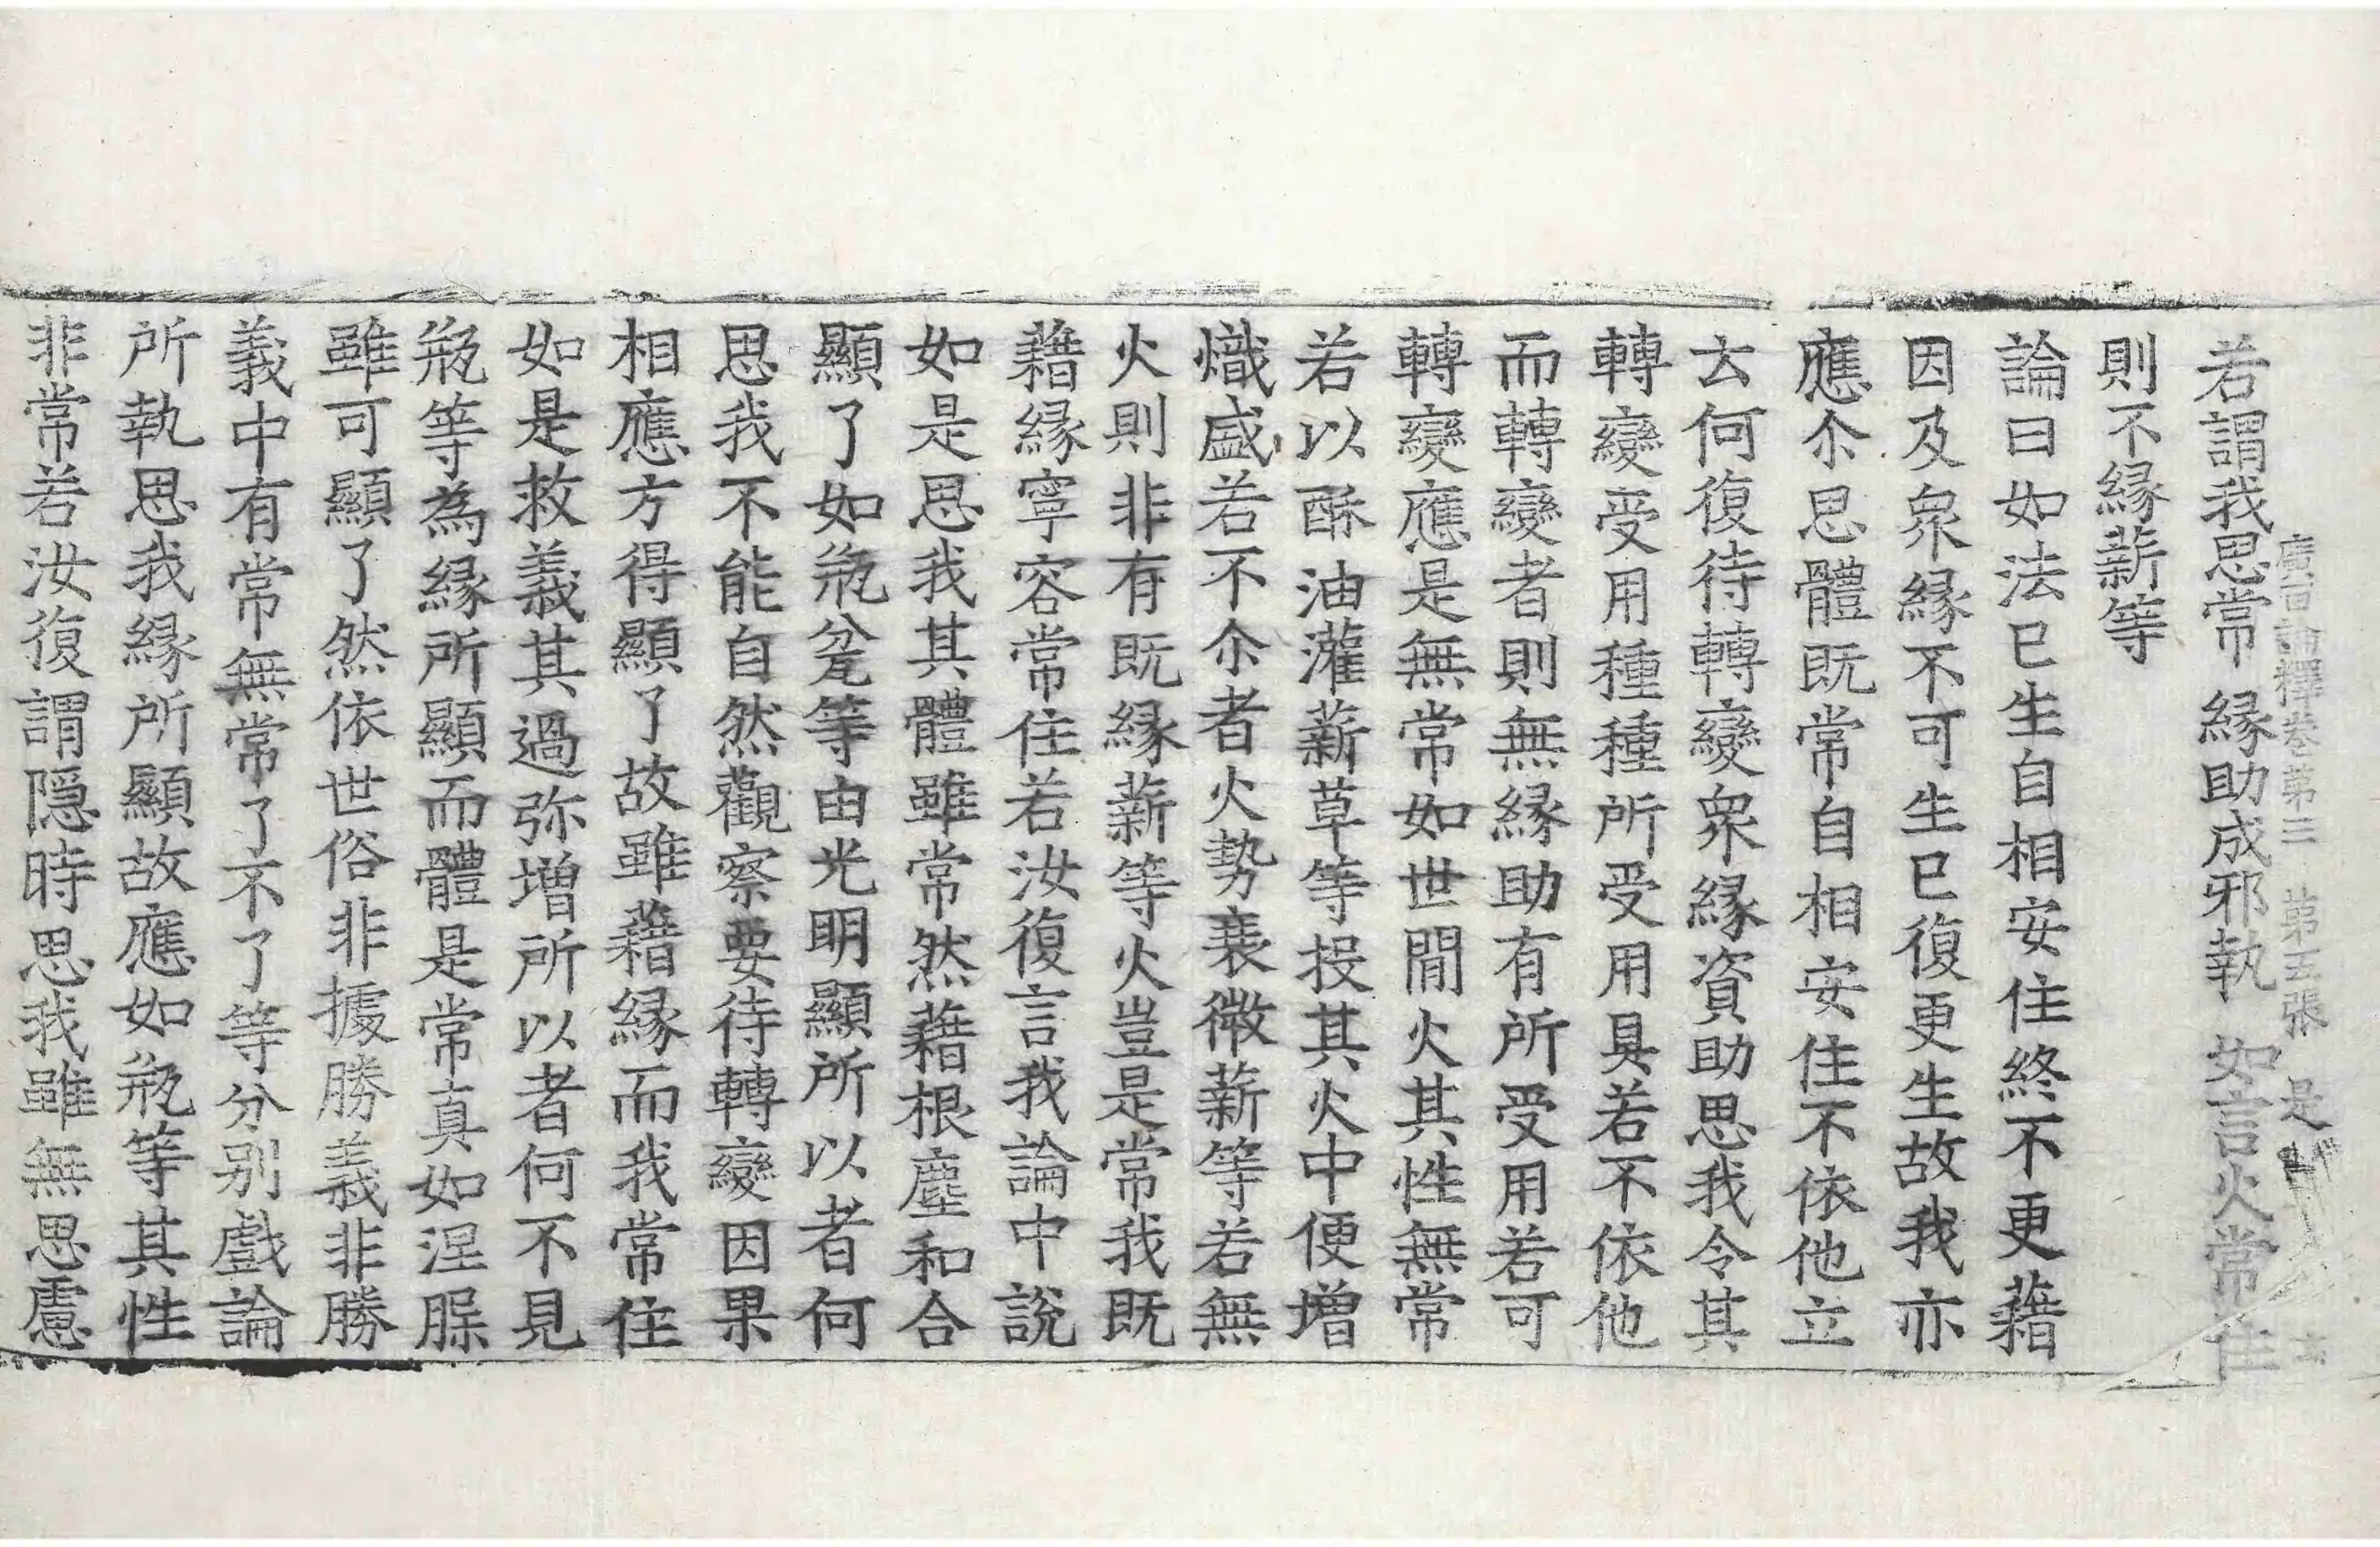 廣百論釋卷第三　第五張　是
若謂我思常　緣助成邪執　如言火常住
則不緣薪等
論曰如法已生自相安住終不更藉
因及衆緣不可生已復更生故我亦
應尒思體既常自相安住不依他立
云何復待轉變衆緣資助思我令其
轉變受用種種所受用具若不依他
而轉變者則無緣助有所受用若可
轉變應是無常如世間火其性無常
若以酥油灌薪草等投其火中便增
熾盛若不尒者火勢衰微薪等若無
火則非有既緣薪等火豈是常我既
藉緣寧容常住若汝復言我論中說
如是思我其體雖常然藉根塵和合
顯了如瓶瓫等由光明顯所以者何
思我不能自然觀察要待轉變因果
相應方得顯了故雖藉緣而我常住
如是救義其過弥增所以者何不見
瓶等為緣所顯而體是常真如涅槃
雖可顯了然依世俗非據勝義非勝
義中有常無常了不了等分别戲論
所執思我緣所顯故應如瓶等其性
非常若汝復謂隠時思我雖無思慮